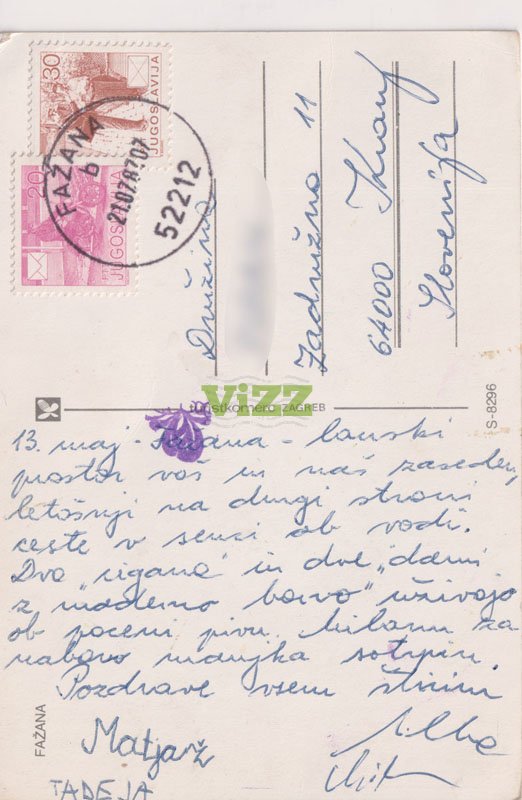 30
JUGOSLAVIJA
20
JUGOSLAVIJA
PTT
FAŽANA
b
21.07.87 07
52212
Družina
Zadružna 11
64000 Kranj
Slovenija
ViZZ
turistkomerc ZAGREB
S-8296
13. maj - - lanski
prostor vaš in naš zaseden,
letošnji na drugi strani
ceste v senci ob vodi.
Dva "cigana" in dve "dami
z moderno barvo" uživajo
ob poceni pivu. Milanu za
nabavo manjka
Pozdrave vsem štirim
FAŽANA
Matjaž
TADEJA